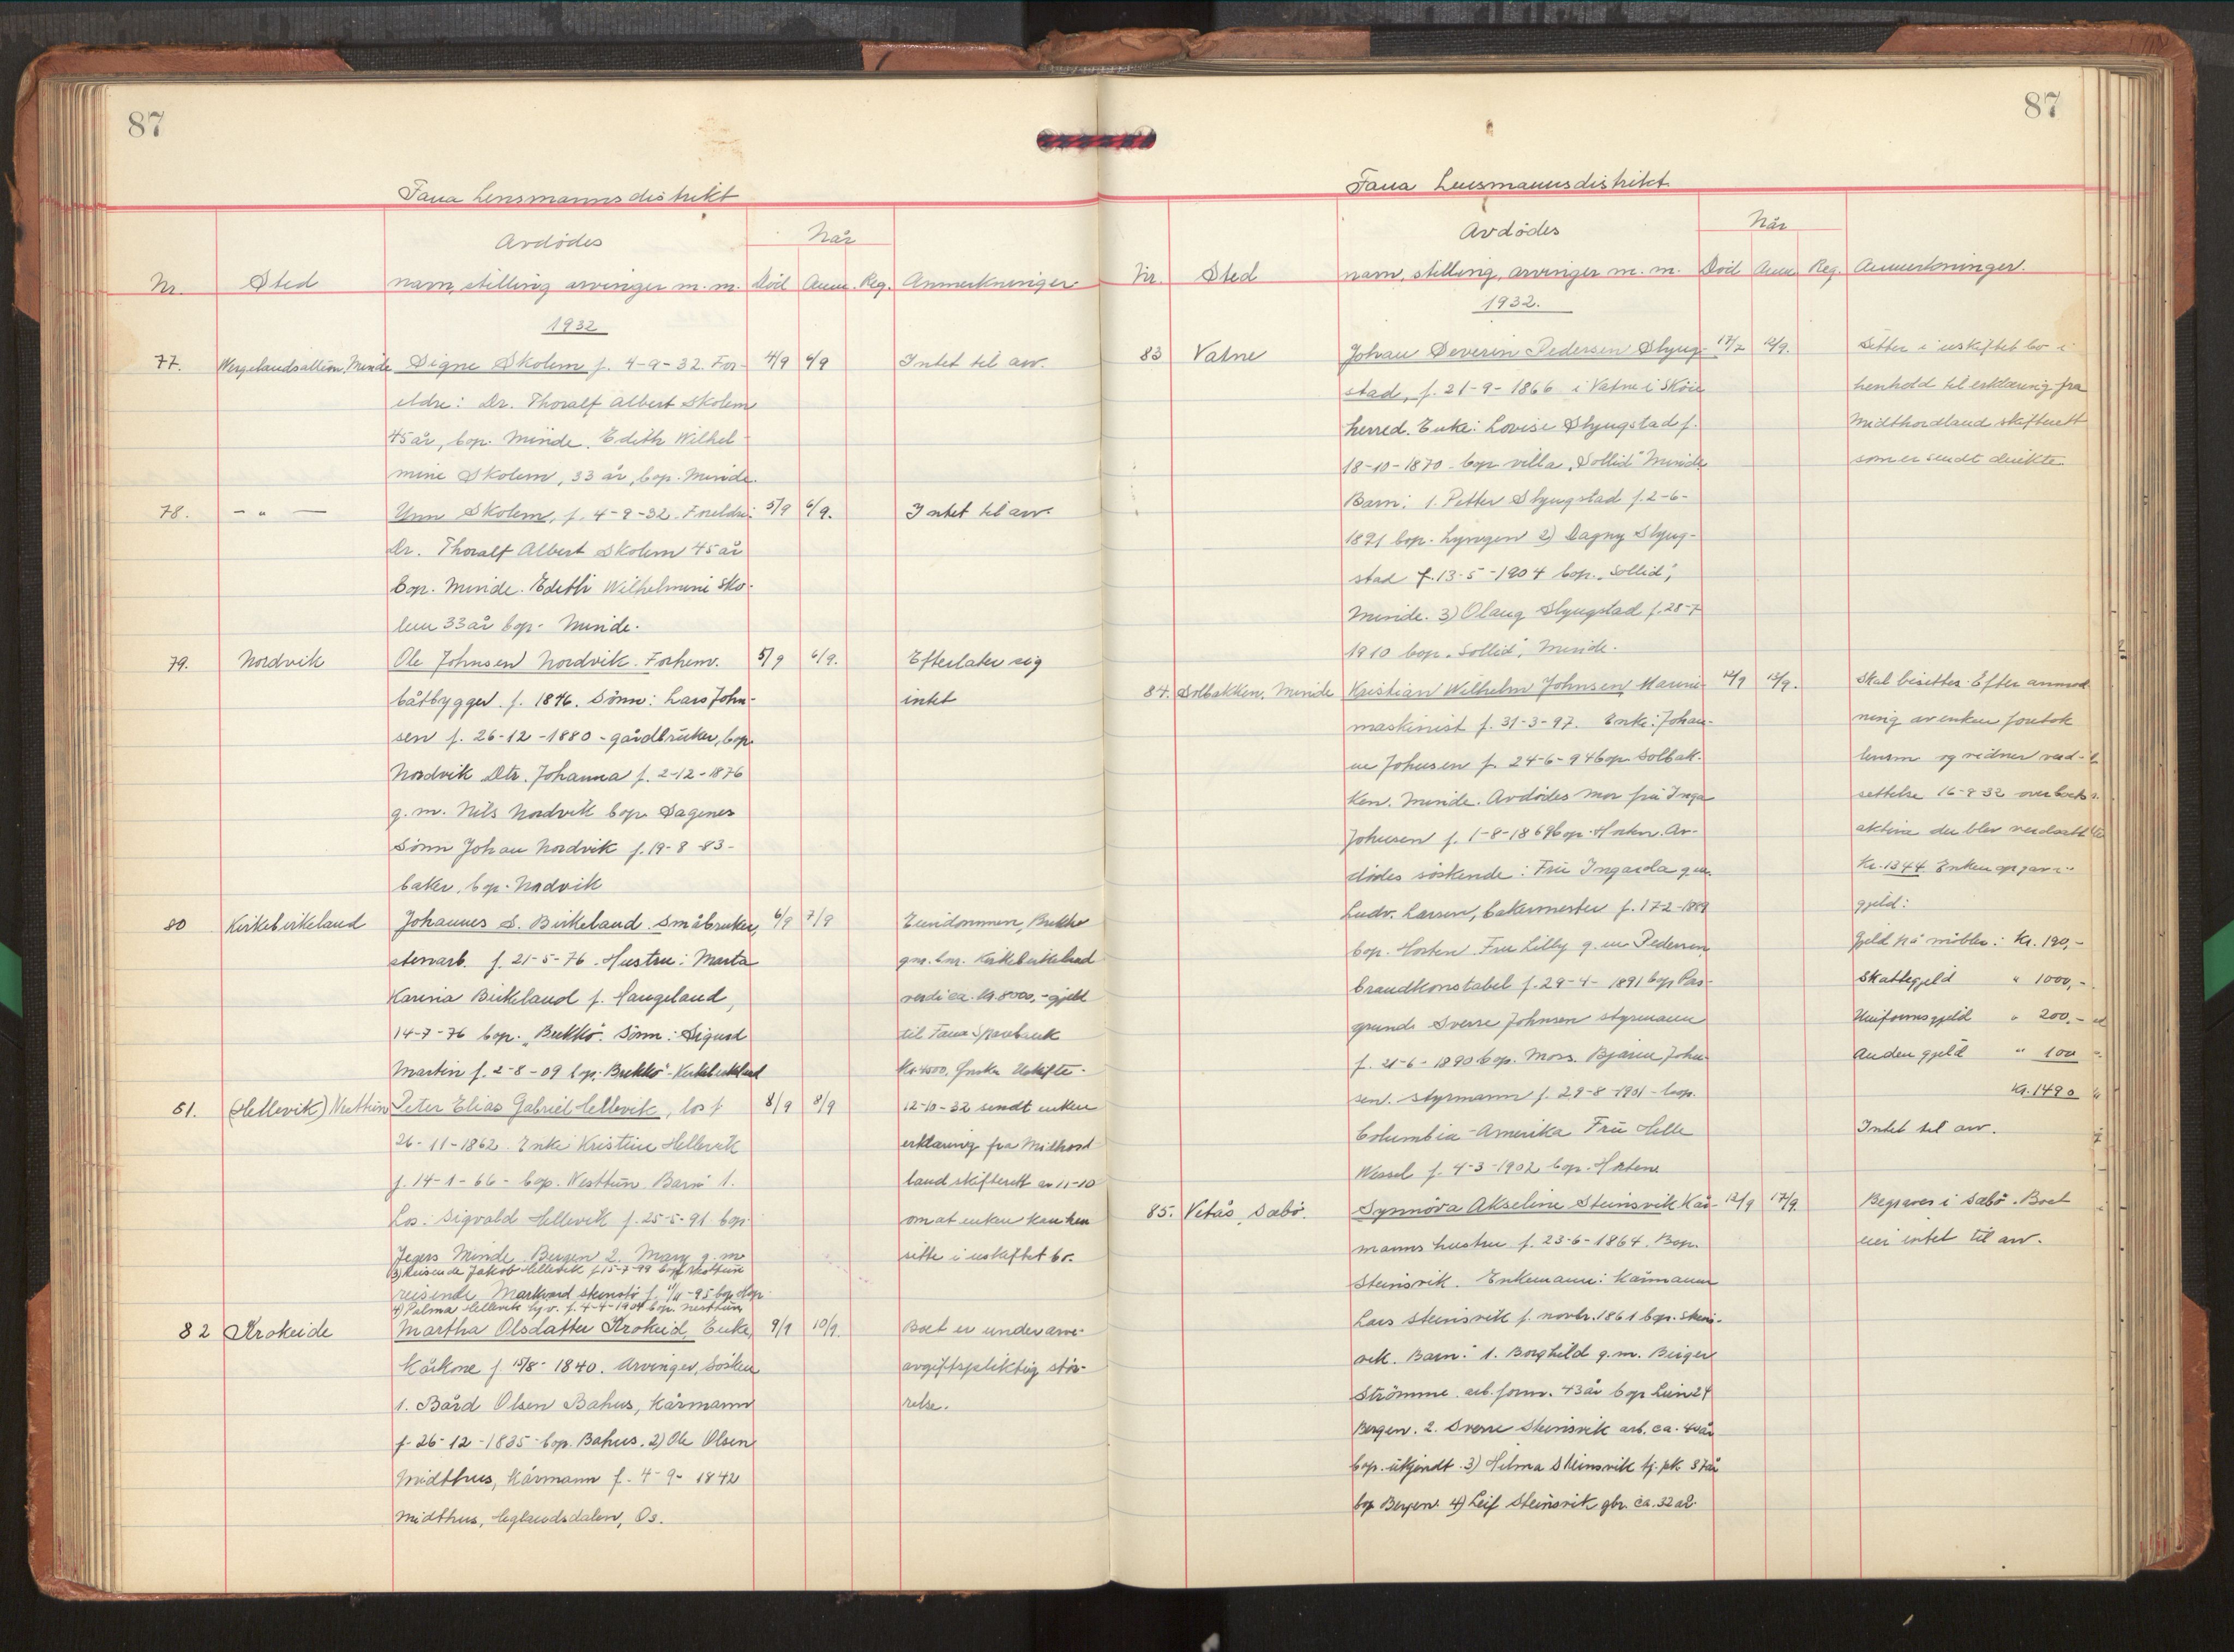 87
Fana Lensmannsdistrikt
Avdödes
Når
Nr. Sted navn, stilling arvinger m. m. Död Anm. Reg. Anmerkninger.
1932
77. Wergelandsalleen, Minde Signe Skolem f. 4-9-32. For- 4/9 6/9 Intet til arv.
eldre: Dr. Thoralf Albert Skolem
45 år, bop. Minde. Edith Wilhel-
mine Skolem, 33 år, bop. Minde.
78. - " - Unn Skolem, f. 4-9-32. Foreldre: 5/9 6/9. Intet til arv.
Dr. Thoralf Albert Skolem 45 år
bop. Minde. Edith Wilhelmine Sko-
lem 33 år bop. Minde.
79. Nordvik Ole Johnsen Nordvik. Forhenv. 5/9 6/9. Efterlater sig
båtbygger f. 1846. Sönn: Lars John- intet
sen f. 26-12-1880 - gårdbruker, bop.
Nordvik Dtr. Johanna f. 2-12-1876
g. m. Nils Nordvik bop. Sagenes
Sönn Johan Nordvik f. 19-8-83-
baker, bop. Nordvik
80 Kirkebirkeland Johannes S. Birkeland. Småbruker, 6/9 7/9 Eiendommen, Brekko
stenarb. f. 21-5-76. Hustru: Marta gnr. bnr. Kirkebirkeland
Karina Birkeland f. Haugeland, verdi ca. kr. 8000,- gjeld
14-7-76 bop. "Brekko". Sönn: Sigurd til Fana Sparebank
Martin f. 2-8-09 bop. Brekko - Kirkebirkeland Kr. 4500. Önsker Uskifte.
81. (Hellevik) Nesttun Peter Elias Gabriel Hellevik, los f. 8/9 8/9 12-10-32 sendt enken
26-11-1862. Enke Kristine Hellevik erklæring fra Midthord-
f. 14-1-66 - bop. Nesttun. Barn 1. land skifterett av 11-10
Los: Sigvald Hellevik f. 25-5-91 bop. om at enken kan hen
Jegers Minde. Bergen 2. Mary g. m. sitte i uskiftet bo.
3) Reisende Jakob Hellevik f. 15-7-99 bop. Nesttun
reisende Markvard Steinstö f. 11/11-95 bop. Hop.
4) Palma Hellevik f. 4-4-1904 bop. Nesttun
82 Krokeide Martha Olsdatter Krokeid, Enke, 9/9 10/9. Boet er under arve-
Kårkone f. 15/8-1840. Arvinger, sösken avgiftspliktig stör-
1. Bård Olsen Bahus, Kårmann relse.
f. 26-12-1835 - bop. Bahus. 2) Ole Olsen
Midthus, Kårmann f. 4-9-1842
Midthus, Heglandsdalen, Os.
87
Fana Lensmannsdistrikt
Avdödes
Når
Nr. Sted navn, stilling, arvinger m. m. Död Anm. Reg. Anmerkninger.
1932.
83 Vatne Johan Severin Pedersen Slyng- 12/9. Sitter i uskiftet bo i
stad, f. 21-9-1866 i Vatne i Sköie henhold til erklæring fra
herred. Enke: Lovise Slyngstad f. Midthordland skifterett
18-10-1870. bop. villa "Sollid" Minde som er sendt direkte.
Barn: 1. Petter Slyngstad f. 2-6-
1891 bop. Lyngen 2) Dagny Slyng-
stad f. 13-5-1904 bop. "Sollid",
Minde. 3) Olaug Slyngstad f. 28-7
1910 bop. "Sollid", Minde.
84. Solbakken, Minde Kristian Wilhelm Johnsen Marine- 12/9 13/9. Skal bisettes. Efter anmod
maskinist f. 31-3-97. Enke: Johan- ning av enken foretok
ne Johnsen f. 24-6-94 bop. Solbak- lensm og vidner verd-
ken. Minde. Avdödes mor fru Inga settelse 16-9-32 over boets
Johnsen f. 1-8-1869 bop. Horten. Av- aktiva der blev verdsatt til
dödes söskende: Fru Ingarda g.m. Kr. 1344. Enken opgav
Ludv. Larsen, bakermester f. 17-2-1889 gjeld:
bop. Horten. Fru Lilly g. m. Pedersen, Gjeld på möbler: Kr. 190,-
brandkonstabel f. 29-4-1891 bop. Pors- Skattegjeld " 1000,-
grund. Sverre Johnsen styrmann Uniformsgjeld " 200,-
f. 21-6-1890 bop. Moss. Bjarne John- Anden gjeld " 100
sen. styrmann f. 29-8-1901 - bop. Kr. 1490
Columbia - Amerika Fru Helle Intet til arv.
Wessel f. 4-3-1902 bop. Horten
85. Vetås, Sæbö. Synnöva Akseline Steinsvik Kår- 12/9 17/9. Begraves i Sæbö. Boet
manns hustru f. 23-6-1864. Bop. eier intet til arv.
Steinsvik. Enkemann: Kårmann
Lars Steinsvik f. novbr. 1861 bop. Steins-
vik. Barn: 1. Borghild g. m. Birger
Strömme. arb. form. 43 år bop. Lien 24
Bergen. 2. Sverre Steinsvik arb. ca. 40 år
bop. ukjendt. 3) Hilma Steinsvik tj. pk 37 år
bop Bergen. 4) Leif Steinsvik gbr. ca. 32 år.